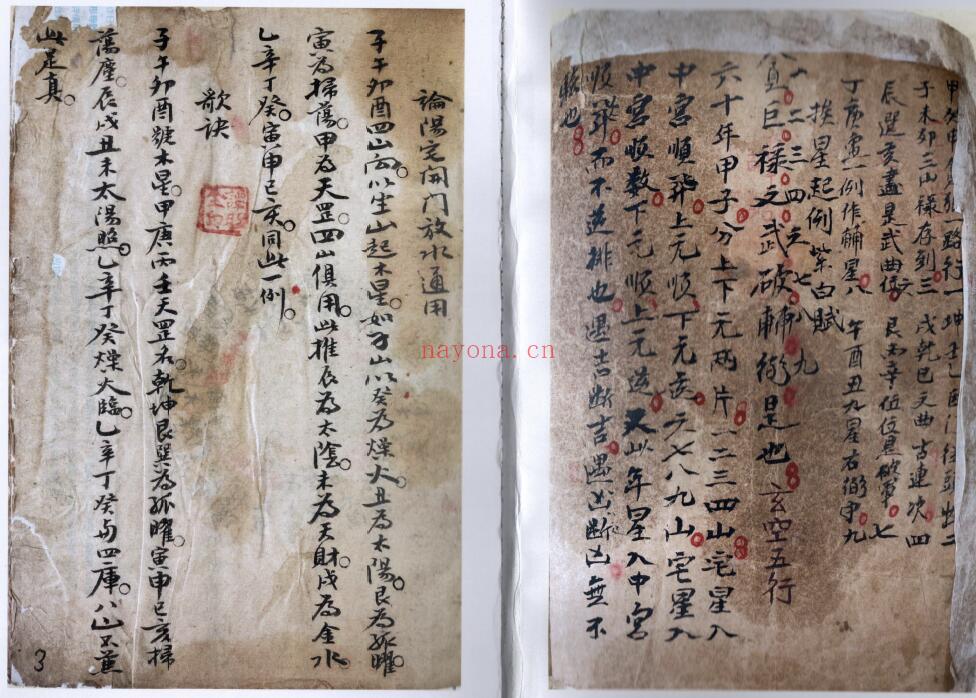 甲癸申貪狼一路行一 坤壬乙巨門從頭出二
子未卯三山祿存到三 戌乾巳文曲皆連次四
辰巽亥盡是武曲位六 艮丙辛位位是破軍七
丁庚寅一例作輔星八 午酉丑九星右弼中九
挨星起例紫白賦
一二三四六七八九
貪巨祿文武破輔弼是也 玄空五行
六十年甲子分上下元兩片一二三四山宅星入
中宮順飛上元順下元逆六七八九山宅星入
中宮順數下元順上元逆又以年星入中宮
順飛而不逆排也遇吉斷吉遇凶斷凶無不
驗也
論陽宅開門放水通用
子午卯酉四山向以坐山起木星如子山以癸為燥火丑為太陽艮為孤曜
寅為掃蕩甲為天罡四山俱用此推辰為太陰未為天財戌為金水
乙辛丁癸寅申巳亥同此一例
歌訣
子午卯酉號木星甲庚丙壬天罡名乾坤艮巽為孤曜寅申巳亥掃
蕩塵辰戌丑未太陽照乙辛丁癸燥火臨乙辛丁癸與四庫八山不兼
此是真
3
nayona.cn